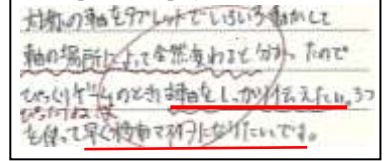 対称の軸をタブレットでいろいろ動かして
軸の場所によって全然変わると分かったので
びっくりゲームのときは軸をしっかり伝えたい。3つ
ぴったり
を使って早く検車マスターになりたいです。